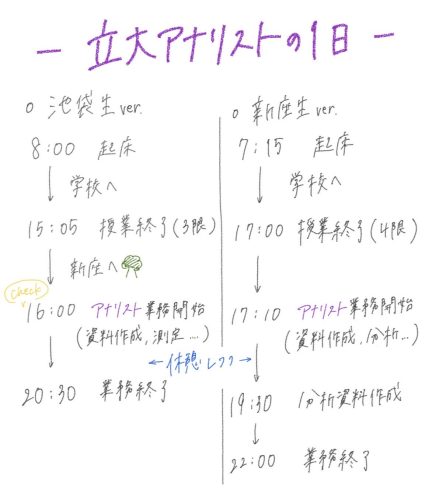 - 立大アナリストの1日 -
○ 池袋生 ver.
8:00 起床
↓ 学校へ
15:05 授業終了(3限)
↓ 新座へ
check
16:00 アナリスト業務開始
(資料作成、測定…)
↓
20:30 業務終了
○ 新座生 ver.
7:15 起床
↓ 学校へ
17:00 授業終了(4限)
↓
17:10 アナリスト業務開始
(資料作成、分析…)
← 休憩 →
↓
19:30 分析資料作成
↓
22:00 業務終了